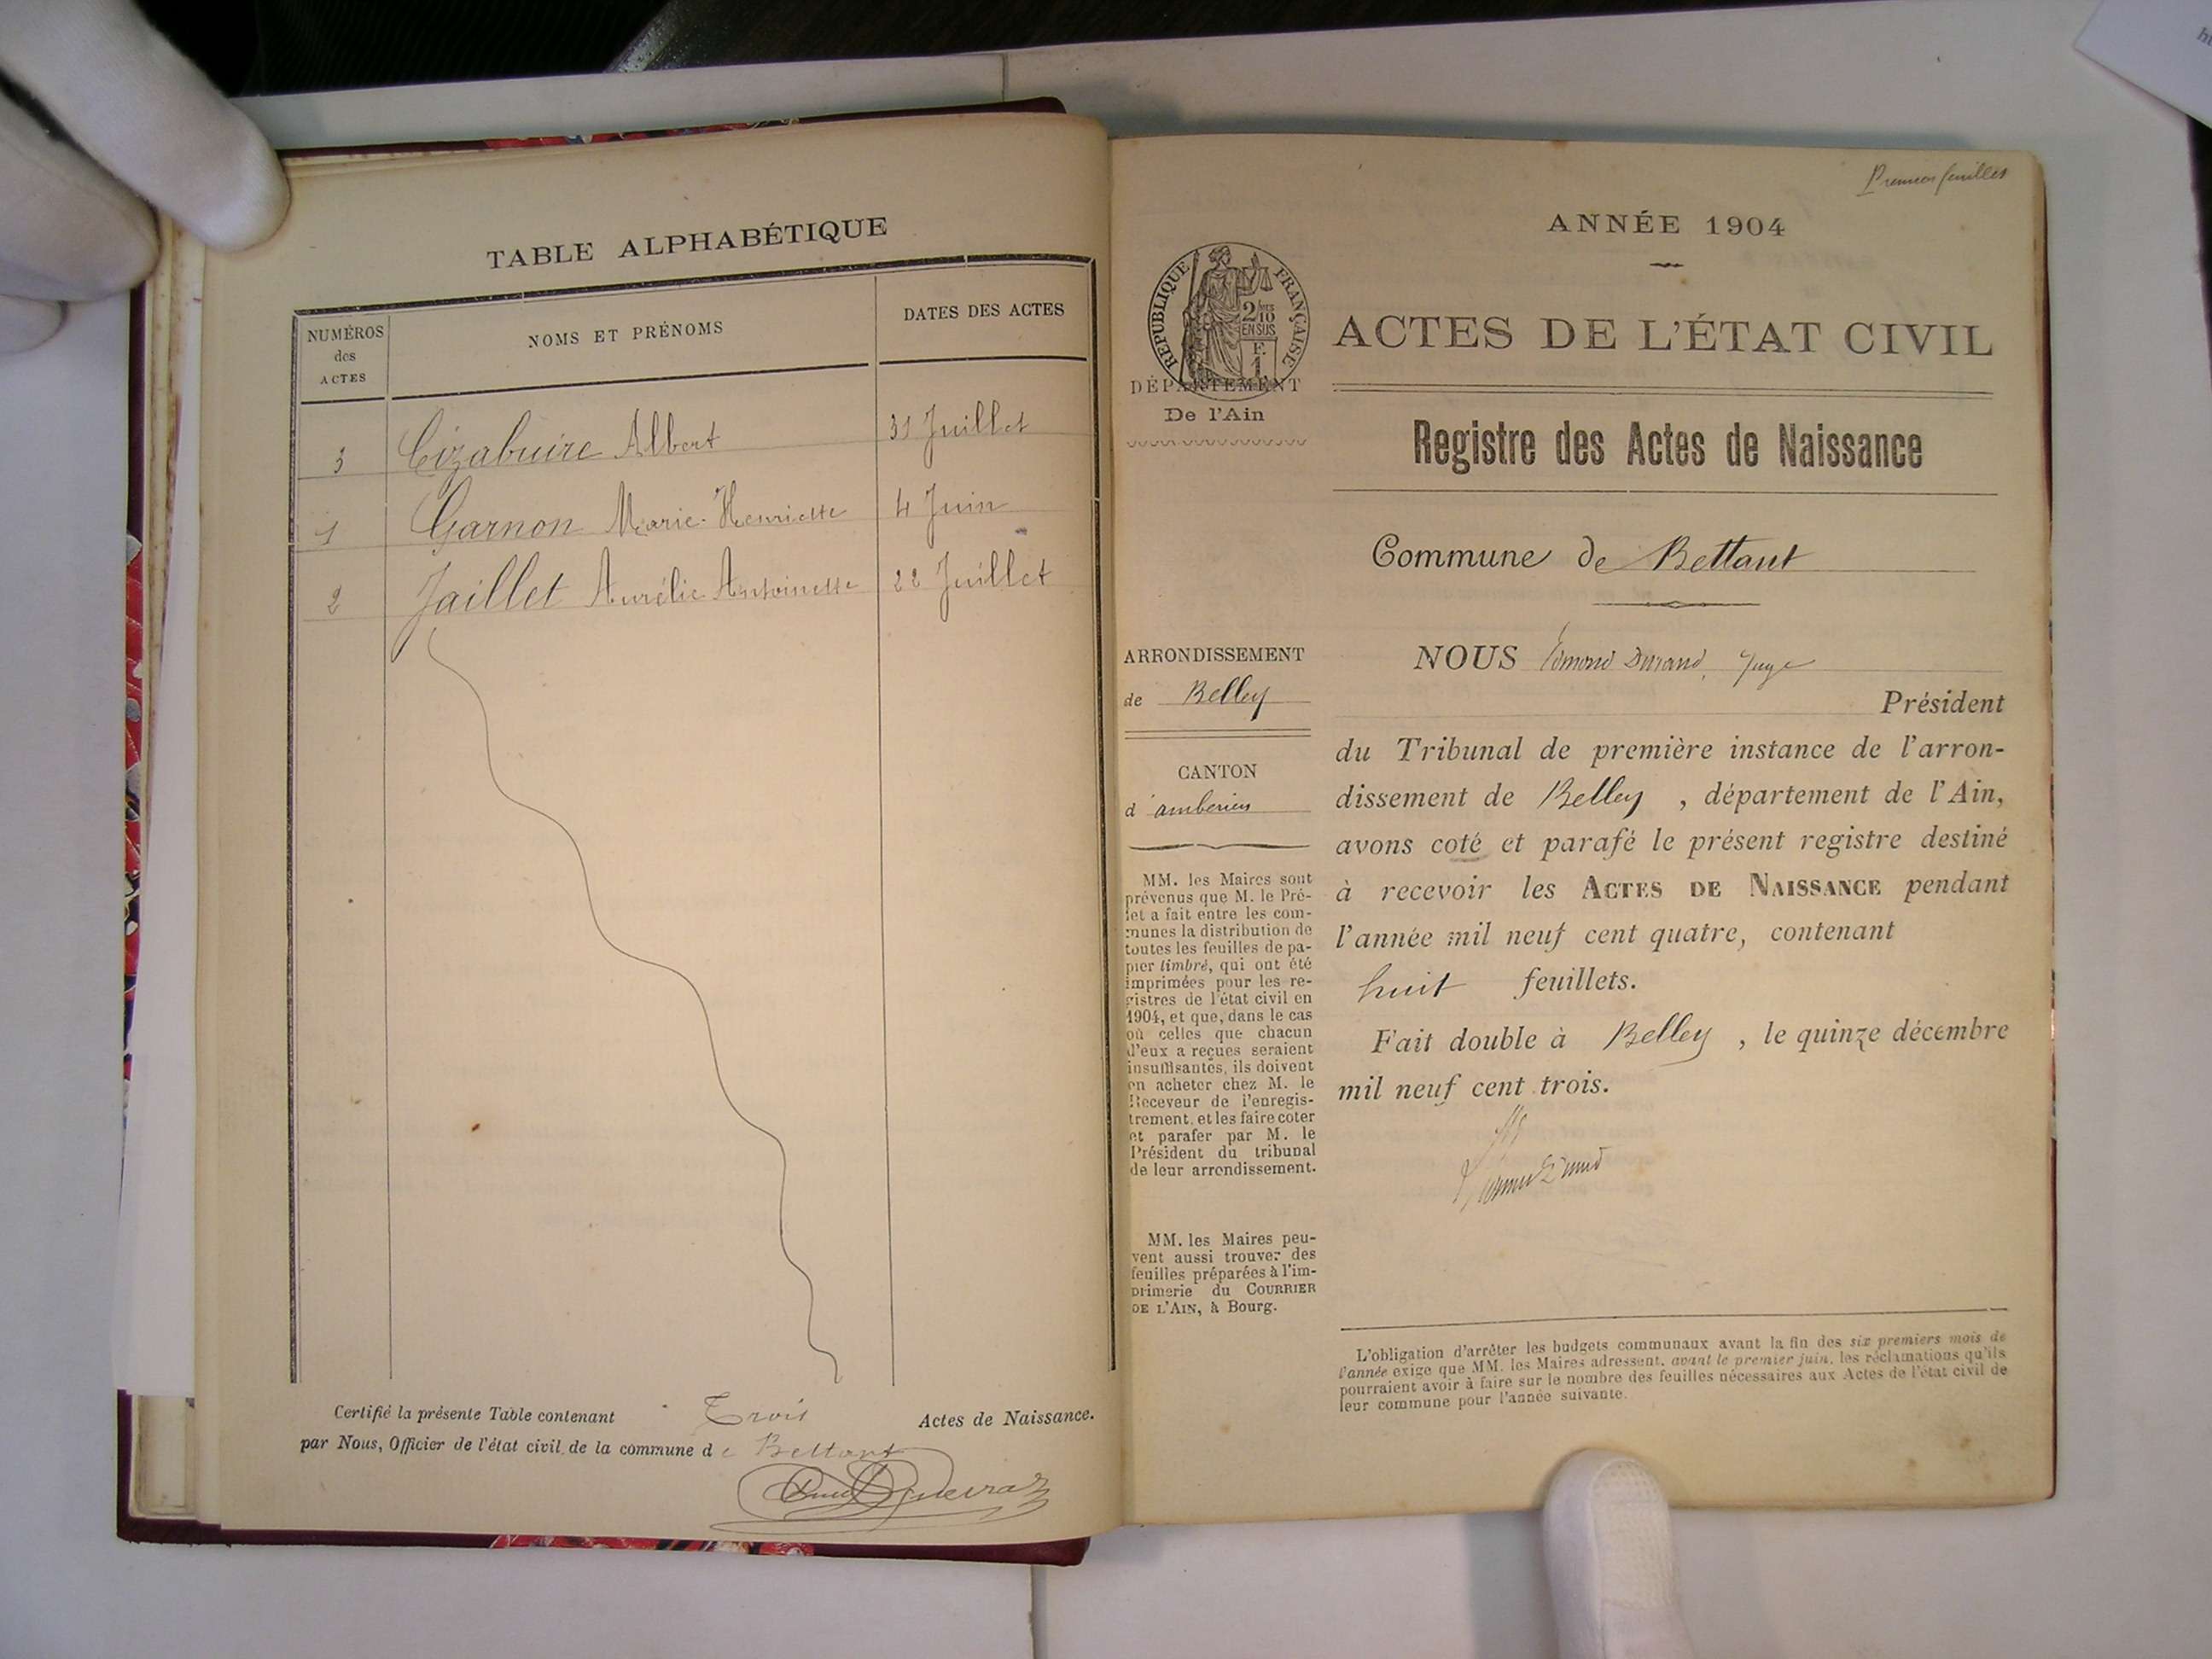 TABLE ALPHABÉTIQUE
NUMÉROS
des
ACTES
NOMS ET PRÉNOMS
DATES DES ACTES
3 Cizabuire Albert 31 Juillet
1 Garnon Marie-Henriette 4 Juin
2 Jaillet Aurélie Antoinette 22 Juillet
Certifié la présente Table contenant Trois Actes de Naissance.
par Nous, Officier de l'état civil de la commune de Bettant
Premier feuillet
ANNÉE 1904
RÉPUBLIQUE FRANÇAISE
2/10
EN SUS
F.
1
ACTES DE L'ÉTAT CIVIL
DÉPARTEMENT
De l'Ain
Registre des Actes de Naissance
Commune de Bettant
ARRONDISSEMENT
de Belley
CANTON
d'amberieu
MM. les Maires sont
prévenus que M. le Pré-
fet a fait entre les com-
munes la distribution de
toutes les feuilles de pa-
pier timbré, qui ont été
imprimées pour les re-
gistres de l'état civil en
1904, et que, dans le cas
où celles que chacun
d'eux a reçues seraient
insuffisantes, ils doivent
en acheter chez M. le
Receveur de l'enregis-
trement, et les faire coter
et parafer par M. le
Président du tribunal
de leur arrondissement.
MM. les Maires peu-
vent aussi trouver des
feuilles préparées à l'im-
primerie du COURRIER
DE L'AIN, à Bourg.
NOUS Edmond Durand, Juge
Président
du Tribunal de première instance de l'arron-
dissement de Belley, département de l'Ain,
avons coté et parafé le présent registre destiné
à recevoir les ACTES DE NAISSANCE pendant
l'année mil neuf cent quatre, contenant
huit feuillets.
Fait double à Belley, le quinze décembre
mil neuf cent trois.
L'obligation d'arrêter les budgets communaux avant la fin des six premiers mois de
l'année exige que MM. les Maires adressent, avant le premier juin, les réclamations qu'ils
pourraient avoir à faire sur le nombre des feuilles nécessaires aux Actes de l'état civil de
leur commune pour l'année suivante.